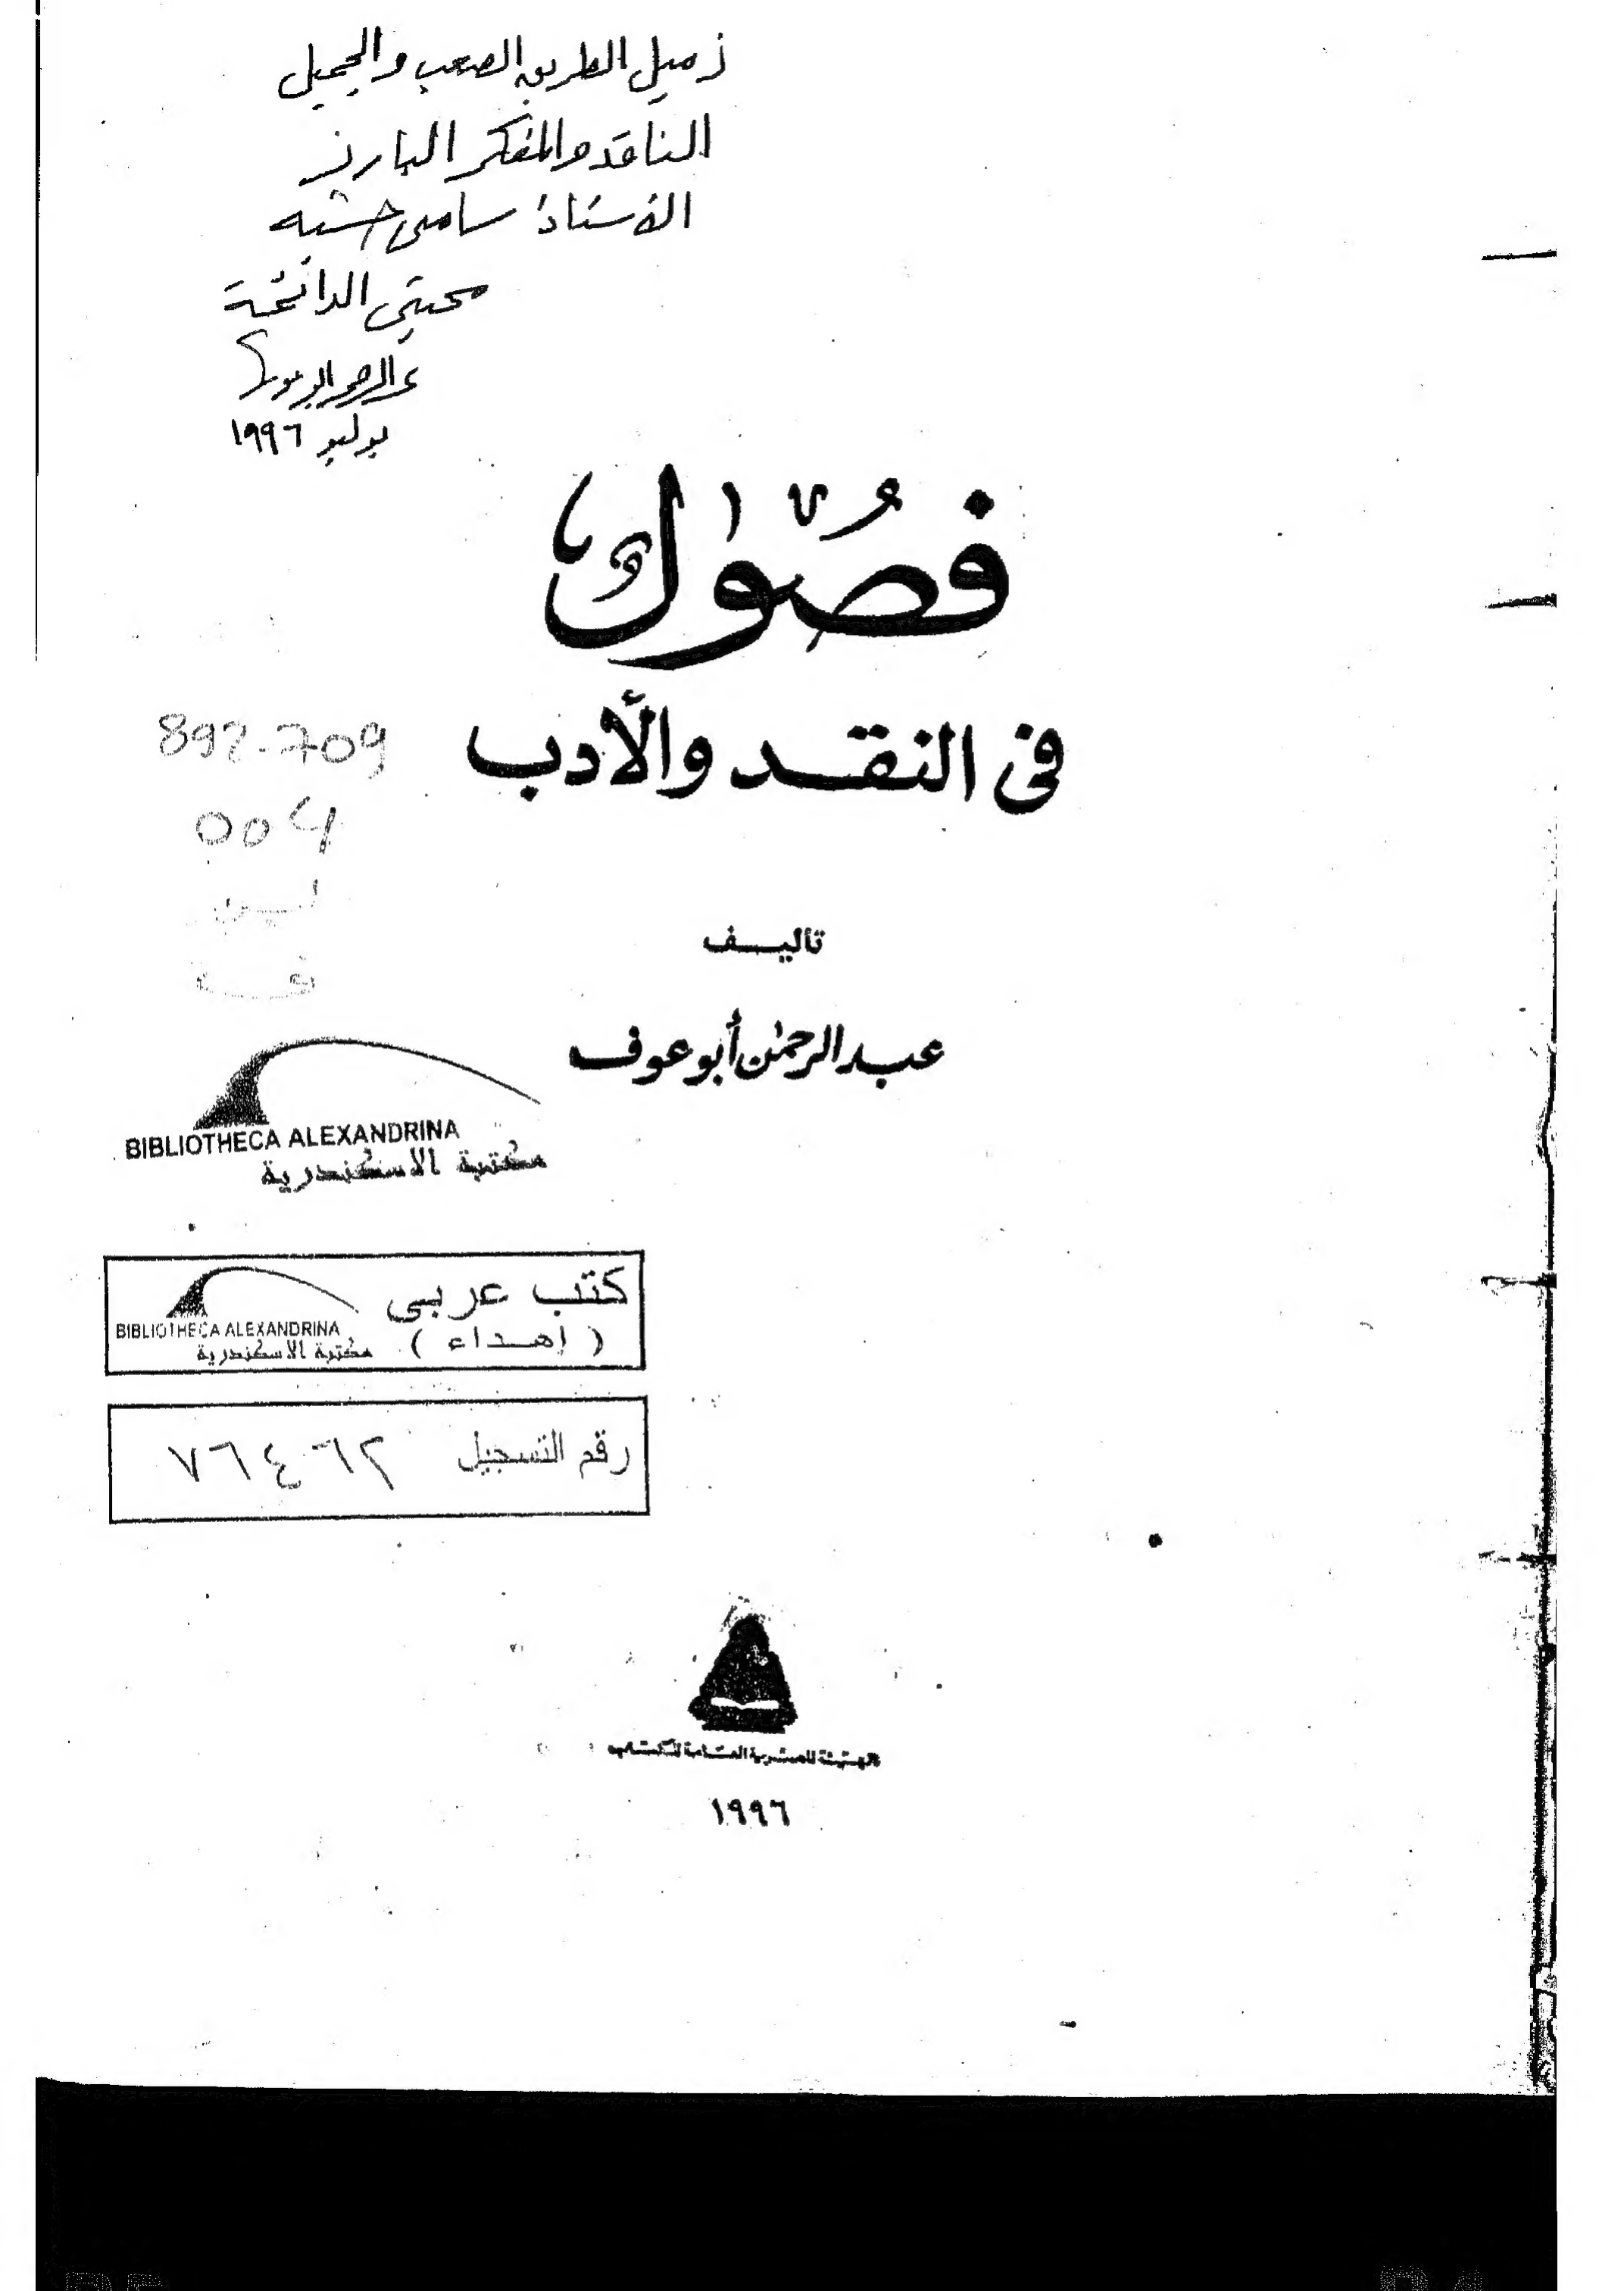 زميل الطريق الصعب والجميل
الناقد والمفكر البارز
الأستاذ سامى خشبه
محبتى الدائمة
عبد الرحمن أبو عوف
يوليو ١٩٩٦
فصول
فى النقد والأدب
892.709
004
تأليف
عبد الرحمن أبو عوف
BIBLIOTHECA ALEXANDRINA
مكتبة الاسكندرية
كتب عربى
( إهداء )
BIBLIOTHECA ALEXANDRINA
مكتبة الاسكندرية
رقم التسجيل ٧٦٤٦٢
الهيئة المصرية العامة للكتاب
١٩٩٦